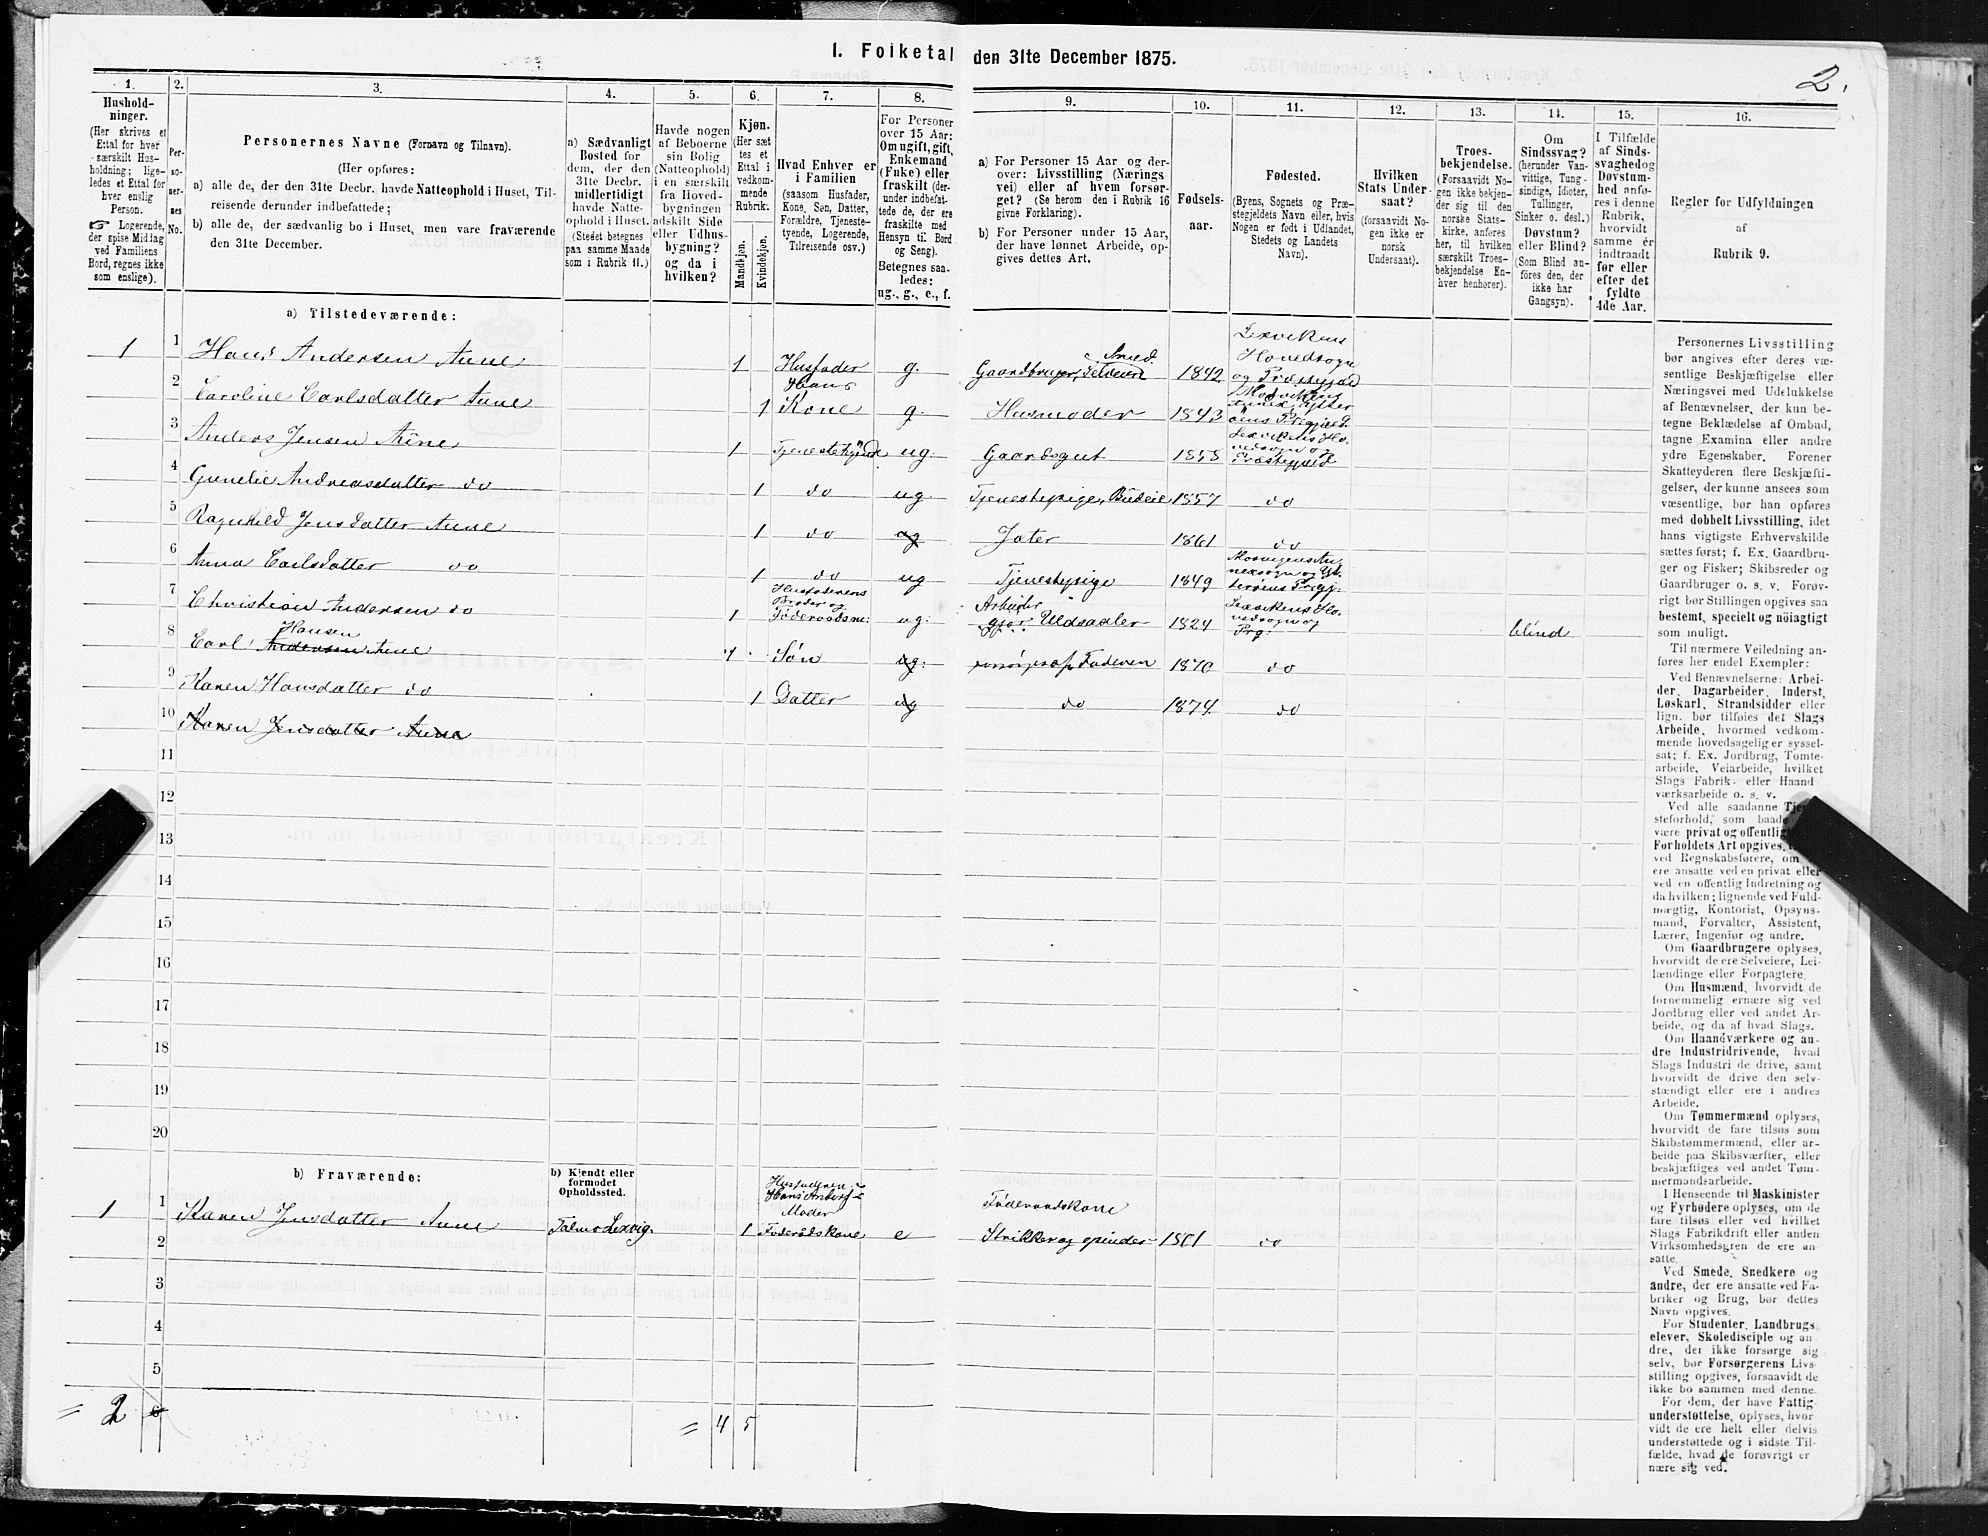 I. Folketal den 31te December 1875.
2.
1.
Hushold-
ninger.
(Her skrives et
Ettal for hver
særskilt Hus-
holdning; lige-
ledes et Ettal for
hver enslig
Person.
☞ Logerende,
der spise Middag
ved Familiens
Bord, regnes ikke
som enslige).
2.
Per-
so-
ner-
nes
No.
3.
Personernes Navne (Fornavn og Tilnavn).
(Her opføres:
a) alle de, der den 31te Decbr. havde Natteophold i Huset, Til-
reisende derunder indbefattede;
b) alle de, der sædvanlig bo i Huset, men vare fraværende
den 31te December.
4.
a) Sædvanligt
Bosted for
dem, der den
31te Decbr.
midlertidigt
havde Natte-
ophold i Huset.
(Stedet betegnes
paa samme Maade
som i Rubrik 11.)
5.
Havde nogen
af Beboerne
sin Bolig
(Natteophold)
i en særskilt
fra Hoved-
bygningen
adskilt Side
eller Udhus-
bygning?
og da i
hvilken?
6.
Kjøn.
(Her sæt
tes et
Ettal i
vedkom-
mende
Rubrik.
Mandkjøn.
Kvindekjøn.
7.
Hvad Enhver er
i Familien
(saasom Husfader,
Kone, Søn, Datter,
Forældre, Tjeneste-
tyende, Logerende,
Tilreisende osv.)
8.
For Personer
over 15 Aar:
Om ugift, gift,
Enkemand
(Enke) eller
fraskilt (der-
under indbefat-
tede de, der ere
fraskilte med
Hensyn til Bord
og Seng).
Betegnes saa-
ledes:
ug., g., e., f.
9.
a) For Personer 15 Aar og der-
over: Livsstilling (Nærings
vei) eller af hvem forsør-
get? (Se herom den i Rubrik 16
givne Forklaring).
b) For Personer under 15 Aar,
der have lønnet Arbeide, op-
gives dettes Art.
10.
Fødsels-
aar.
11.
Fødested.
(Byens, Sognets og Præ-
stegjeldets Navn eller, hvis
Nogen er født i Udlandet,
Stedets og Landets
Navn).
12.
Hvilken
Stats Under-
saat?
(forsaavidt No-
gen ikke er
norsk
Undersaat).
13.
Troes-
bekjendelse.
(Forsaavidt No-
gen ikke bekjen-
der sig til den
norske Stats-
kirke, anføres
her, til hvilken
særskilt Troes-
bekjendelse En-
hver henhører).
14.
Om
Sindssvag?
(herunder Van-
vittige, Tung-
sindige, Idioter,
Tullinger,
Sinker o. desl.)
Døvstum?
eller Blind?
(Som Blind an-
føres den, der
ikke har
Gangsyn).
15.
I Tilfælde
af Sinds-
svaghed og
Døvstum-
hed anfø-
res i denne
Rubrik,
hvorvidt
samme er
indtraadt
før eller
efter det
fyldte
4de Aar.
16.
Regler for Udfyldningen
af
Rubrik 9.
a) Tilstedeværende:
1 1 Hans Andersen Aune 1 Husfader Hans g. Gaardbruger, Selveier Smed. 1842 Lexvikens Hovedsogn og Præstegjeld
2 Caroline Carlsdatter Aune 1 Kone g. Husmoder 1843 Mosvikens Annex Ytterøens Prgjeld.
3 Anders Jensen Aune 1 Tjenestetyende ug. Gaardsgut 1858 Lexvikens Hovedsogn og Præstegjeld
4 Gunelie Andreasdatter do 1 do ug. Tjenestepige, Budeie 1857 do
5 Ragnhild Jensdatter Aune 1 do ug Jæter 1861 do
6 Anna Carlsdatter do 1 do ug Tjenestepige 1849 Mosvigens Annexsogn og Ytterøens Prgj:
7 Christian Andersen do 1 Husfaderens Broder og Føderaadsm: ug: Arbeider gjør Uldsadler 1824 Lexvikens Hovedsogn og Prg: blind
8 Carl Andersen Hansen Aune 1 Søn ug: forsørges af Faderen 1870 do
9 Karen Hansdatter do 1 Datter ug do 1874 do
10 Karen Jensdatter Aune
11
12
13
14
15
16
17
18
19
20
b) Fraværende:
b) Kjendt eller
formodet
Opholdssted.
1 1 Karen Jensdatter Aune Lexvig. 1 Husfaderen Hans Moder Føderådskone e Føderaadskone Strikker og spinder 1801 do
2
3
4
5
6
= 2
= 4 5
Personernes Livsstilling
bør angives efter deres væ-
sentlige Beskjæftigelse eller
Næringsvei med Udelukkelse
af Benævnelser, der kun be-
tegne Beklædelse af Ombud,
tagne Examina eller andre
ydre Egenskaber. Forener
Skatteyderen flere Beskjæfti-
gelser, der kunne ansees som
væsentlige, bør han opføres
med dobbelt Livsstilling, idet
hans vigtigste Erhvervskilde
sættes først; f. Ex. Gaardbru-
ger og Fisker; Skibsreder og
Gaardbruger o. s. v. Forøv-
rigt bør Stillingen opgives saa
bestemt, specielt og nöiagtigt
som muligt.
Til nærmere Veiledning an-
føres her endel Exempler:
Ved Benævnelserne: Arbei-
der, Dagarbeider, Inderst,
Løskarl, Strandsidder eller
lign. bør tilføies det Slags
Arbeide, hvormed vedkom-
mende hovedsagelig er syssel-
sat; f. Ex. Jordbrug, Tomte-
arbeide, Veiarbeide, hvilket
Slags Fabrik- eller Haand
værksarbeide o. s. v.
Ved alle saadanne
steforhold, som baade
være privat og offentlig
Forholdets Art opgives,
ved Regnskabsførere, om
ere ansatte ved en privat eller
ved en offentlig Indretning og
da hvilken; lignende ved Fuld-
mægtig, Kontorist, Opsyns-
mand, Forvalter, Assistent,
Lærer, Ingeniør og andre.
Om Gaardbrugere oplyses,
hvorvidt de ere Selveiere, Lei-
lændinge eller Forpagtere.
Om Husmænd, hvorvidt de
fornemmelig ernære sig ved
Jordbrug eller ved andet Ar-
beide, og da af hvad Slags.
Om Haandværkere og an-
dre Industridrivende, hvad
Slags Industri de drive, samt
hvorvidt de drive den selv-
stændigt eller ere i andres
Arbeide.
Om Tømmermænd oplyses,
hvorvidt de fare tilsøs som
Skibstømmermænd, eller ar-
beide paa Skibsværfter, eller
beskjæftiges ved andet Tøm-
mermandsarbeide.
I Henseende til Maskinister
og Fyrbødere oplyses, om de
fare tilsøs eller ved hvilket
Slags Fabrikdrift eller anden
Virksomhedsgren de ere an-
satte.
Ved Smede, Snedkere og
andre, der ere ansatte ved Fa-
briker og Brug, bør dettes
Navn opgives.
For Studenter, Landbrugs
elever, Skoledisciple og an-
dre, der ikke forsørge sig
selv, bør Forsørgerens Livs-
stilling opgives, forsaavidt de
ikke bo sammen med denne.
For dem, der have Fattig-
understøttelse, oplyses, hvor
vidt de ere helt eller delvis
understøttede og i sidste Til-
fælde, hvad de forøvrigt er
nære sig ved.